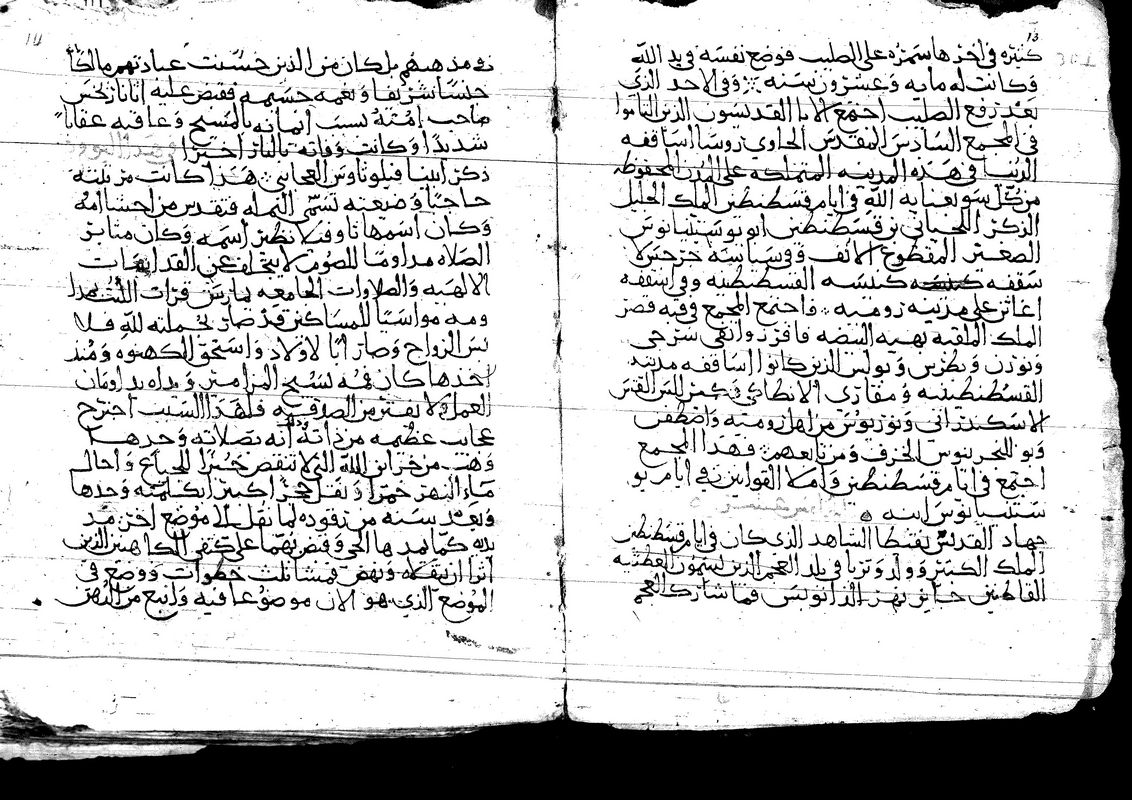 13
كثيره في اخرها سمره على الصليب فوضع نفسه في يد الله
وكانت له مايه وعشرون سنه وفي الاحد الذي
بعد رفع الصليب اجتمع الابا القديسون الذين التاموا
في المجمع السادس المقدس الحاوي روسا اساقفه
الدنيا في هذه المدينه المتملكه على المدن المحفوظه
من كل سو بعنايه الله في ايام قسطنطين الملك الجليل
الذكر اللحياني بن قسطنطين ابو يوستنيانوس
الصغير المقطوع الانف وفي سياسة جرجس لا
سقفه كنيسه القسطنطينيه وفي اسقفة
اغاثن على مدينه روميه فاجتمع المجمع في قبه قصر
الملك الملقبه بهيه البيضه فافرد وانفى سرجي
وبورن وبطرس وبولس الذين كانوا اساقفه مدينه
القسطنطينيه ومقاري الانطاكي وكيرللس القس
الاسكندراني ونوريوس من اهل روميه واصطفن
وبوللبحرينوس الخرف ومن تابعهم فهذا المجمع
اجتمع في ايام قسطنطين واملا القوانين في ايام يو
ستنيانوس ابنه
جهاد القديس نقيطا الشاهد الذي كان في ايام قسطنطين
الملك الكبير وولد وتربا في بلد العجم الذين يسمون الغطثيه
القاطنين حايز نهر الدانوبس فما شارك العجم
14
في مذهبهم بل كان من الذين حسنت عبادتهم مالكا
جنسا شريفا ونعمه جسيمه فقبض عليه اثاناريخس
صاحب امته بسبب ايمانه بالمسيح وعاقبه عقابا
شديدا وكانت وفاته بالنار اخيرا
ذكر ابينا فيلوثاوس العجايبي هذا كانت من بثنيه
حاجبا وضيعته تسمى النمله فتقدس من احشا امه
وكان اسمها ثاوفيلا نظير اسمه وكان مثابر
الصلاه مداوما للصوم لا يتخلف عن القداسات
الالهيه والصلوات الجامعه يمارس قراات الكتب
ومه مواسيا للمساكين قد صار بجملته لله فلا
بس الزواج وصار ابا لاولاد واستحق الكهنوه ومنذ
اخذها كان فمه يسبح المزامير ويداه يداومان
العمل لا يفتر من الصدقه فلهذا السبب اجترح
عجايب عظيمه من ذاته انه بصلاته وحدها
وهب من خزاين الله التي لا تنقص خبزا للجياع واحال
ماء النهر خمرا ونقل حجرا كبيرا بكلمته وحدها
وبعد سنه من رقوده لما نقل الا موضع اخر مد
يديه كما يمدها الحي وقبض بهما على كتفي الكاهنين الذين
اثرا ان ينقلاه ونهض فمشا ثلث خطوات ووضع في
الموضع الذي هو الان موضوعا فيه وانبع من النهر